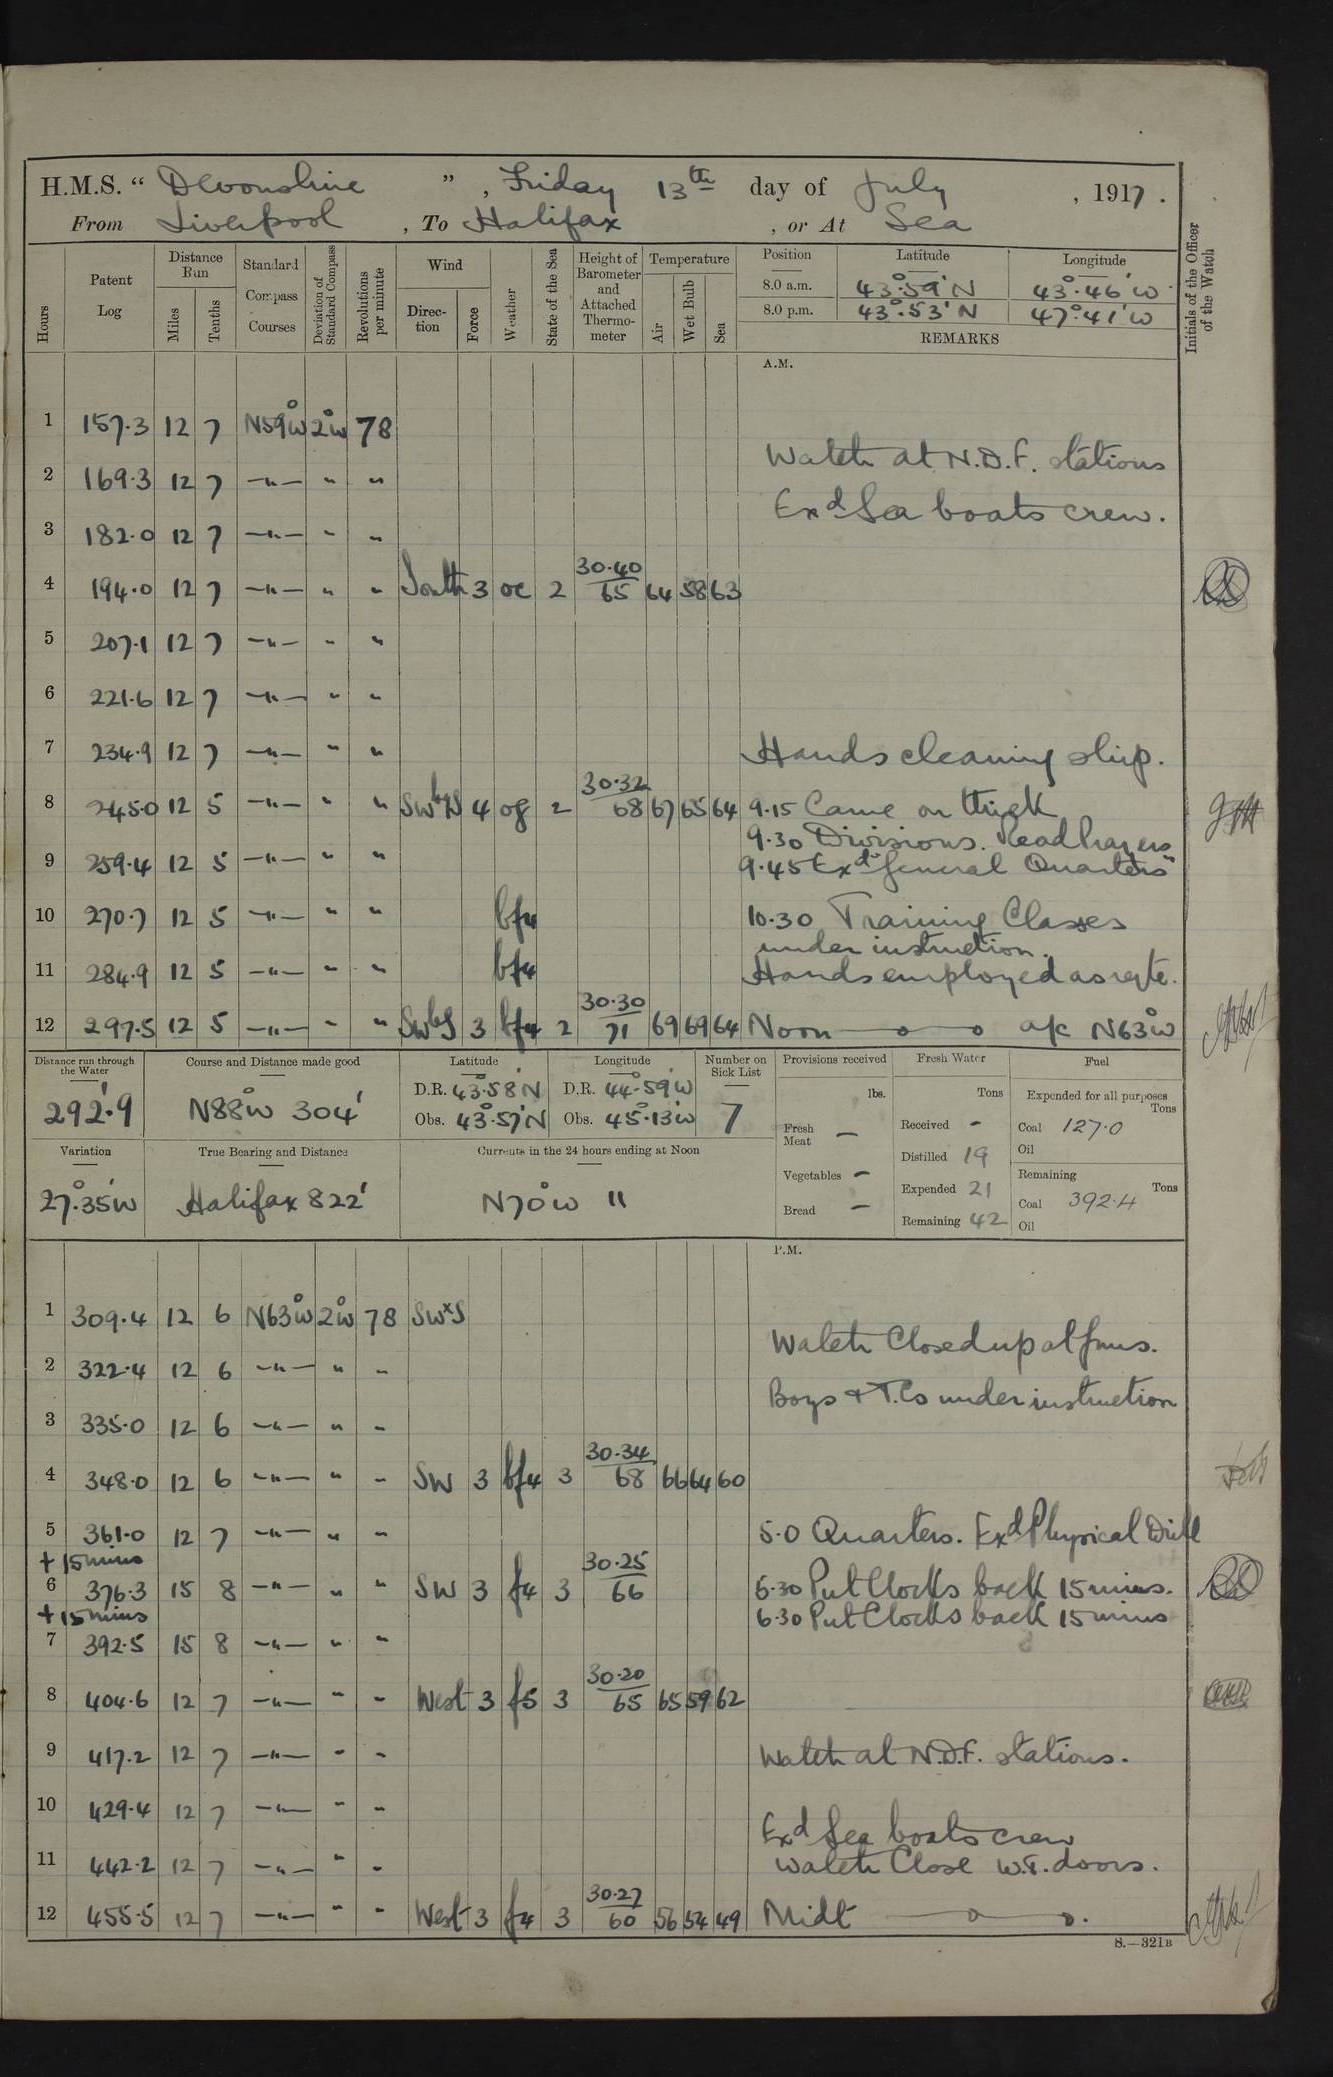 H.M.S. “ Devonshire ” , Friday 13th day of July , 1917 .
From Liverpool , To Halifax , or At Sea
Hours Patent Log Distance Run Miles Tenths Standard Compass Courses Deviation of Standard Compass Revolutions per minute Wind Direction Force Weather State of the Sea Height of Barometer and Attached Thermometer Temperature Air Wet Bulb Sea Position Latitude Longitude Initials of the Officer of the Watch
8.0 a.m. 43°.59' N 43°.46' W
8.0 p.m. 43°.53' N 47°.41' W
REMARKS
A.M.
1 157.3 12 7 N59°W 2°W 78
Watch at N.D.F. stations
2 169.3 12 7 —"— " "
Exd Sea boats crew.
3 182.0 12 7 —"— " "
4 194.0 12 7 —"— " " South 3 oc 2 30.40 65 64 58 63
5 207.1 12 7 —"— " "
6 221.6 12 7 —"— " "
7 234.9 12 7 —"— " " Hands cleaning ship.
8 245.0 12 5 —"— " " SWbyS 4 og 2 30.32 68 67 65 64 9.15 Came on thick
9.30 Divisions. Read Prayers
9 259.4 12 5 —"— " " 9.45 Exd "General Quarters"
10 270.7 12 5 —"— " " bf4 10.30 Training Classes
under instruction.
11 284.9 12 5 —"— " " bf4 Hands employed as reqte.
12 297.5 12 5 —"— " " SWbyS 3 bf4 2 30.30 71 69 69 64 Noon —o—o a/c N63°W
Distance run through the Water Course and Distance made good Latitude Longitude Number on Sick List Provisions received Fresh Water Fuel
292'.9 N88°W 304' D.R. 43°.58' N D.R. 44°.59' W 7 lbs. Tons Expended for all purposes Tons
Obs. 43°.57' N Obs. 45°.13' W Fresh Meat — Received - Coal 127.0
Distilled 19 Oil
Variation True Bearing and Distance Currents in the 24 hours ending at Noon Vegetables — Expended 21 Remaining Tons
27°.35'W Halifax 822' N70°W 11 Bread — Remaining 42 Coal 392.4
Oil
P.M.
1 309.4 12 6 N63°W 2°W 78 SWxS
Watch Closed up at guns.
2 322.4 12 6 —"— " "
Boys & T.Cs under instruction
3 335.0 12 6 —"— " "
4 348.0 12 6 —"— " " SW 3 bf4 3 30.34 68 66 64 60
5 361.0 12 7 —"— " " 5.0 Quarters. Exd Physical Drill
+ 15 mins
6 376.3 15 8 —"— " " SW 3 f4 3 30.25 66 5.30 Put Clocks back 15 mins.
+ 15 mins 6.30 Put Clocks back 15 mins
7 392.5 15 8 —"— " "
8 404.6 12 7 —"— " " West 3 f5 3 30.20 65 65 59 62
9 417.2 12 7 —"— " " Watch at N.D.F. stations.
10 429.4 12 7 —"— " "
Exd Sea boats crew
11 442.2 12 7 —"— " " Watch Close W.T. doors.
12 455.5 12 7 —"— " " West 3 f4 3 30.27 60 56 54 49 Midt —o—o.
S.—321B